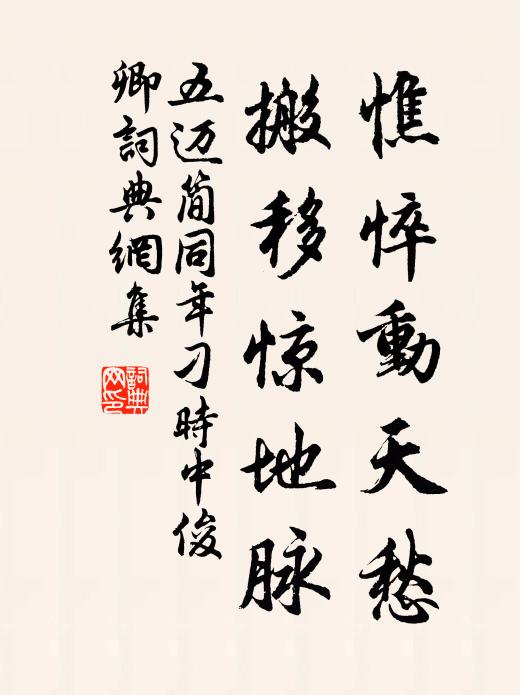 憔悴動天愁
搬移惊地脉
五迈简同年刁時中俊
卿詞典網集
詞典
网印